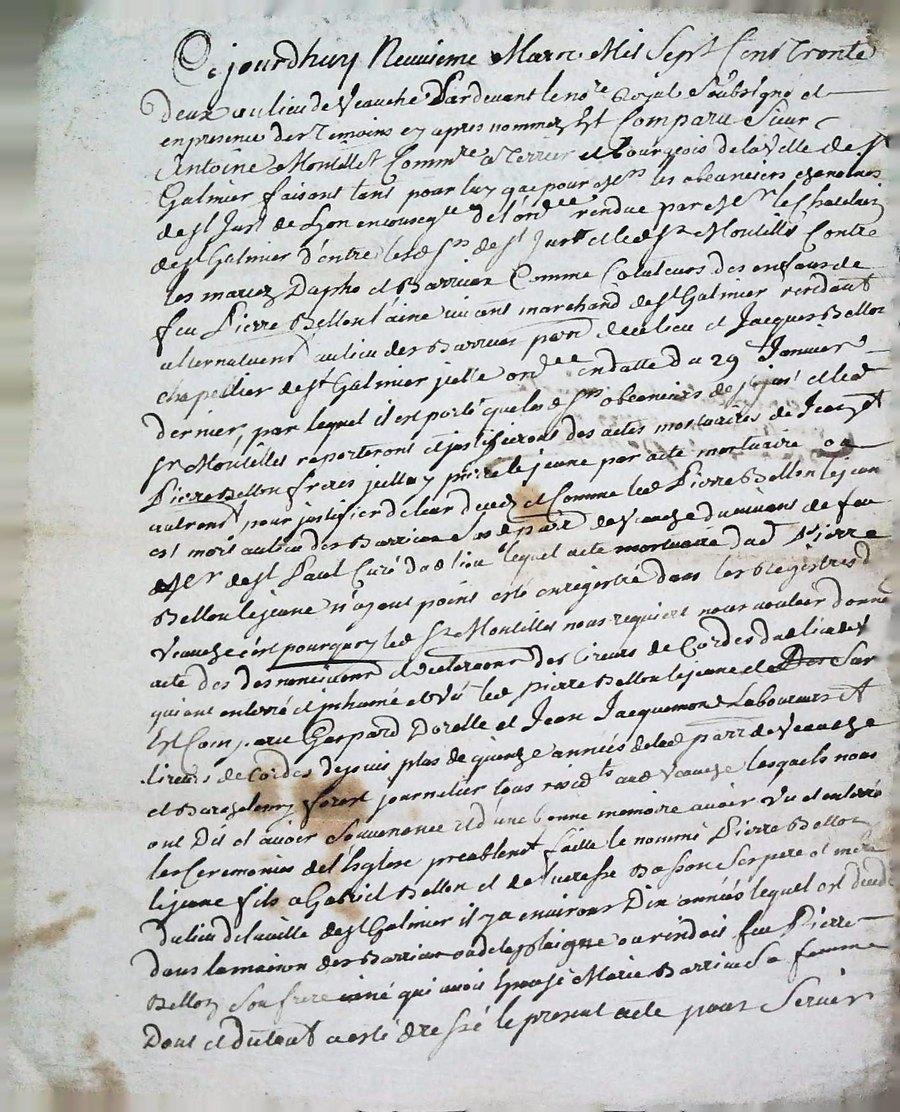 Cejourdhuy Neuvieme Mars Mil Sept Cens Trente
deux au lieu de Veauche Pardevant le nore Royal Soubsigné et
en presence des Temoins cy apres nommez Est Comparu Sieur
Antoine Montellet Commre a Terrier et Bourgeois de la Ville de St
Galmier faisant tant pour luy que pour les obeanciers
de St Just de Lyon en conseqce de l'ordce rendue par Mr le Chatelain
de St Galmier d'entre lesd Srs de St Just et led Sr Montellet Contre
les mariez Dapho et Barrieu Comme tuteurs des enfans de
feu Pierre Bellon l'aine vivant marchand de St Galmier
au lieu des Barrieux parr dud lieu et Jacques Bellon
chapellier de St Galmier icelle ordce en datte du 29 Janvier
dernier, par lequel il est porté que lesd Srs obeanciers de St Just et led
Sr Montellet reporteront et justifieront des actes mortuaires de Jean et
Pierre Bellon freres icelluy pierre le jeune par acte mortuaire ou
autremt pour justifier de leur deces et Comme led Pierre Bellon le jeune
est mort au lieu des Barrieux parr de Veauche du vivant de feu
Mer de St Paul Curé dud lieu lequel acte mortuaire dud Pierre
Bellon le jeune n'ayant point esté enregistré dans les Registres de
Veauche c'est pourquoy led Sr Montellet nous requiert nous vouloir donner
acte des denonciations et declarations des tireurs de Cordes dud lieu de
qui ont enterré et inhumé et vû led Pierre Bellon le jeune
Est Comparu Gaspard Dorelle et Jean Jacquemond Laboureurs et
tireurs de Cordes depuis plus de quinze années de lad parr de Veauche
et Barthelemy journalier tous residts aud Veauche lesquels nous
ont Dit et avoir Souvenance et d'une bonne memoire avoir vû et enterré
les Ceremonies de l'Eglise prealablemt faitte le nommé Pierre Bellon
le jeune fils a Gabriel Bellon et de Ses pere et mere
du lieu de la ville de St Galmier il y a environ Dix années lequel est decedé
dans la maison des Barrieux ou feu Pierre
Bellon Son frere ainé qui avoit Epousé Marie Barrieu Sa femme
Dont et du tout a esté dressé le present acte pour Servir